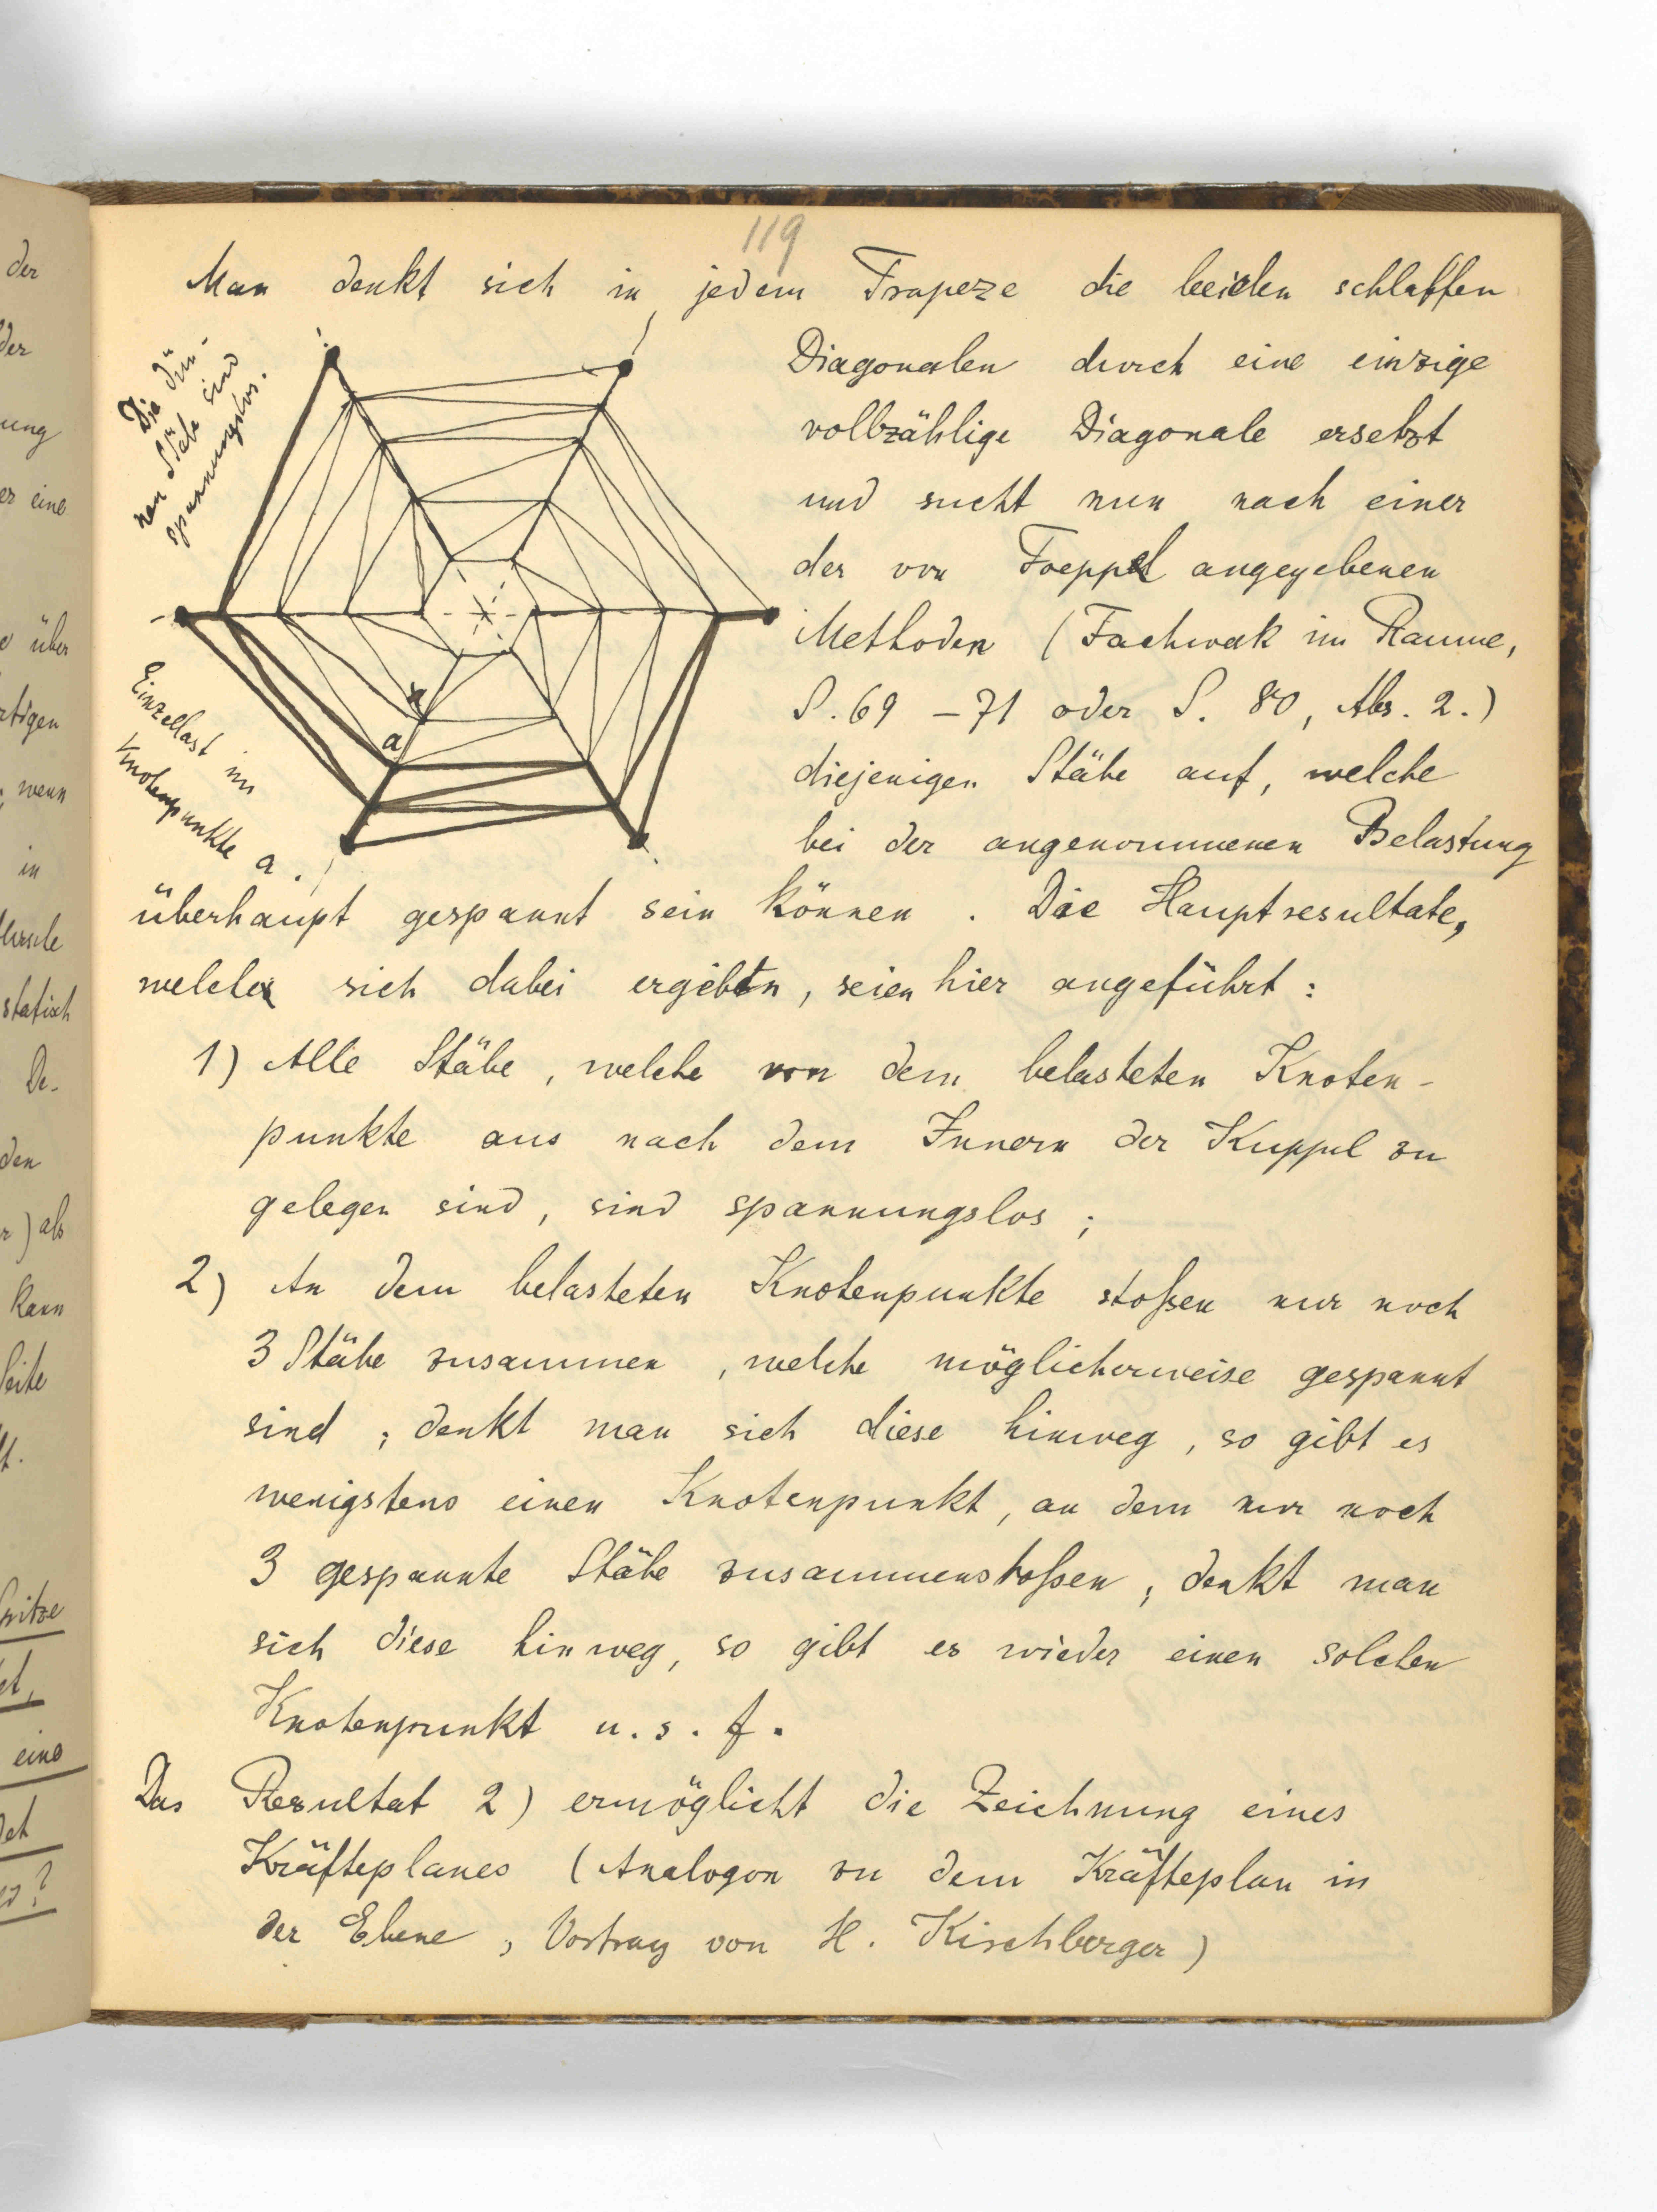 119
Man denkt sich in jedem Trapeze die beiden schlaffen
Diagonalen durch eine einzige
vollzählige Diagonale ersetzt
und sucht nun nach einer
der von Foeppl angegebenen
Methoden (Fachwerk im Raume,
S. 69 – 71 oder S. 80, Abs. 2.)
diejenigen Stäbe auf, welche
bei der angenommenen Belastung
überhaupt gespannt sein können. Die Hauptresultate,
welche sich dabei ergeben, seien hier angeführt:
1) Alle Stäbe, welche von dem belasteten Knoten-
punkte aus nach dem Innern der Kuppel zu
gelegen sind, sind spannungslos;
2) An dem belasteten Knotenpunkte stoßen nur noch
3 Stäbe zusammen, welche möglicherweise gespannt
sind; denkt man sich diese hinweg, so gibt es
wenigstens einen Knotenpunkt, an dem nur noch
3 gespannte Stäbe zusammenstoßen; denkt man
sich diese hinweg, so gibt es wieder einen solchen
Knotenpunkt u. s. f.
Das Resultat 2) ermöglicht die Zeichnung eines
Kräfteplanes (Analogon zu dem Kräfteplan in
der Ebene, Vortrag von H. Kirchberger)
Die dün-
nen Stäbe sind
spannungslos.
a
Einzellast im
Knotenpunkte a.
der
der
ung
er eine
über
rtigen
; wenn
in
statisch
De-
den
r) als
kann
Seite
Spitze
et,
eine
det
es?